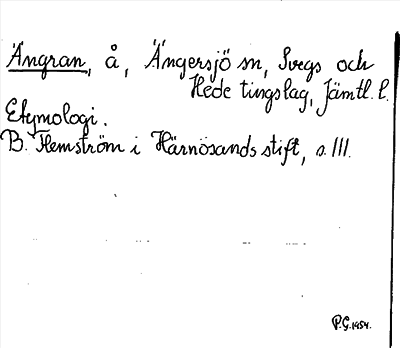 Ängran, å, Ängersjö sn, Svegs och
Hede tingslag, Jämtl. l.
Etymologi.
B. Flemström i Härnösands stift, s. 111.
P.G. 1954.